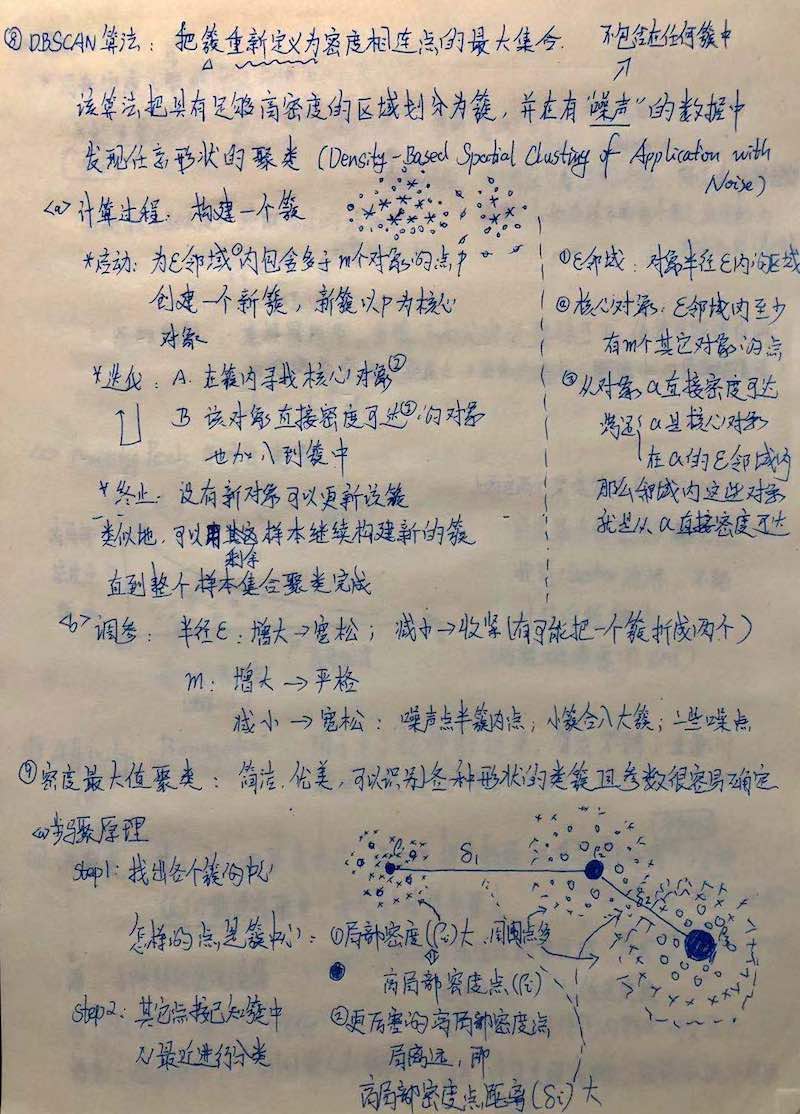 ⑧ DBSCAN算法：把簇重新定义为密度相连点的最大集合.
不包含在任何簇中
该算法把具有足够高密度的区域划分为簇，并在有"噪声"的数据中
发现任意形状的聚类（Density-Based Spatial Clusting of Application with
Noise）
<a> 计算过程：构建一个簇
*启动：为ε邻域①内包含多于m个对象的点p
创建一个新簇，新簇以p为核心
对象
*迭代：A. 在簇内寻找核心对象②
B 该对象直接密度可达③的对象
也加入到簇中
*终止：没有新对象可以更新该簇
类似地，可以用其它样本继续构建新的簇
剩余
直到整个样本集合聚类完成
①ε邻域：对象半径ε内的区域
②核心对象：ε邻域内至少
有m个其它对象的点
③从对象a直接密度可达
满足{a是核心对象
在a的ε邻域内
那么邻域内这些对象
就是从a直接密度可达
<b> 调参：半径ε：增大→宽松；减小→收紧（有可能把一个簇拆成两个）
m：增大→严格
减小→宽松：噪声点半簇内点；小簇合入大簇；一些噪点
⑨密度最大值聚类：简洁.优美，可以识别各种形状的类簇且参数很容易确定
<a>步骤原理
step1：找出各个簇的中心
怎样的点是簇中心：①局部密度(ρi)大.周围点多
高局部密度点(ρi)
δ1
δ2
step2：其它点按已知簇中
心最近进行分类
②更厉害的高局部密度点
局离远，即
高局部密度点距离(δi)大